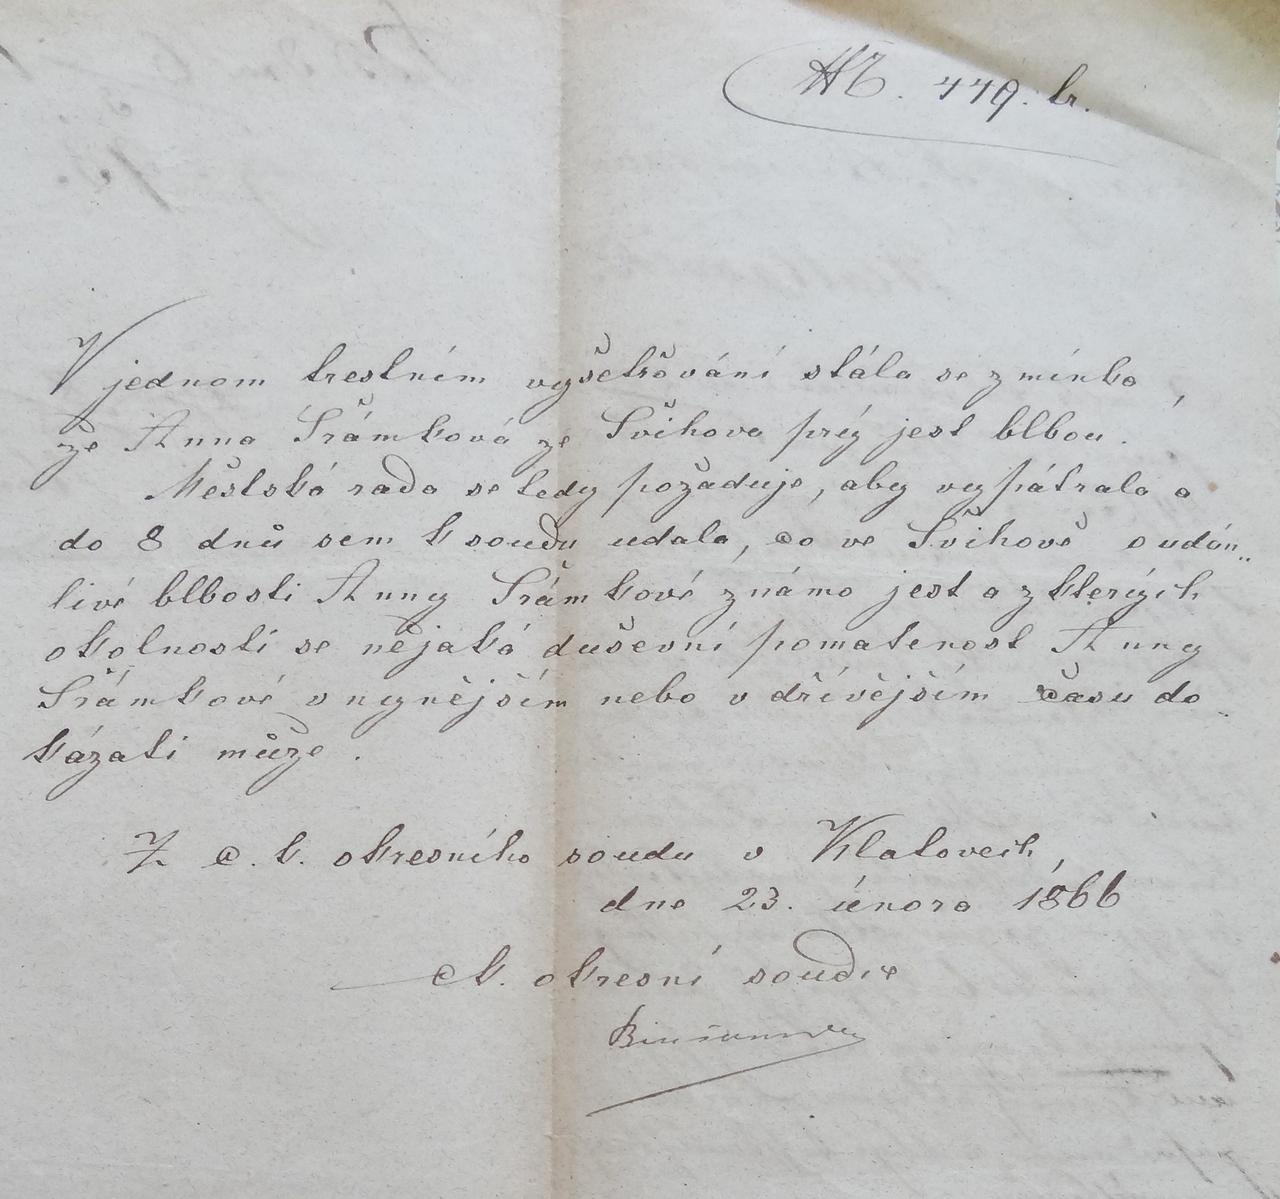 449. tr.
V jednom trestném vyšetřování stála se zmínka,
že Anna Šrámková ze Švihova prý jest blbou.
Městská rada se tedy požaduje, aby vypátrala a
do 8 dnů sem k soudu udala, co ve Švihově o udán„
livé blbosti Anny Šrámkové známo jest a z kterých
okolností se nějaká duševní pomatenost Anny
Šrámkové v nynějším nebo v dřívějším času do„
kázati může.
Z c. k. okresního soudu v Klatovech,
dne 23. února 1866
ck. okresní soudce